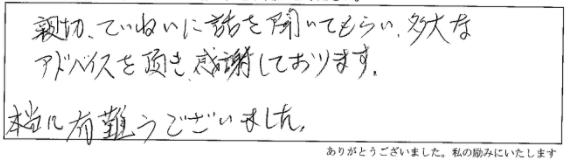 親切、ていねいに話を聞いてもらい、多大な
アドバイスを頂き、感謝しております。
本当に有難うございました。
ありがとうございました。私の励みにいたします